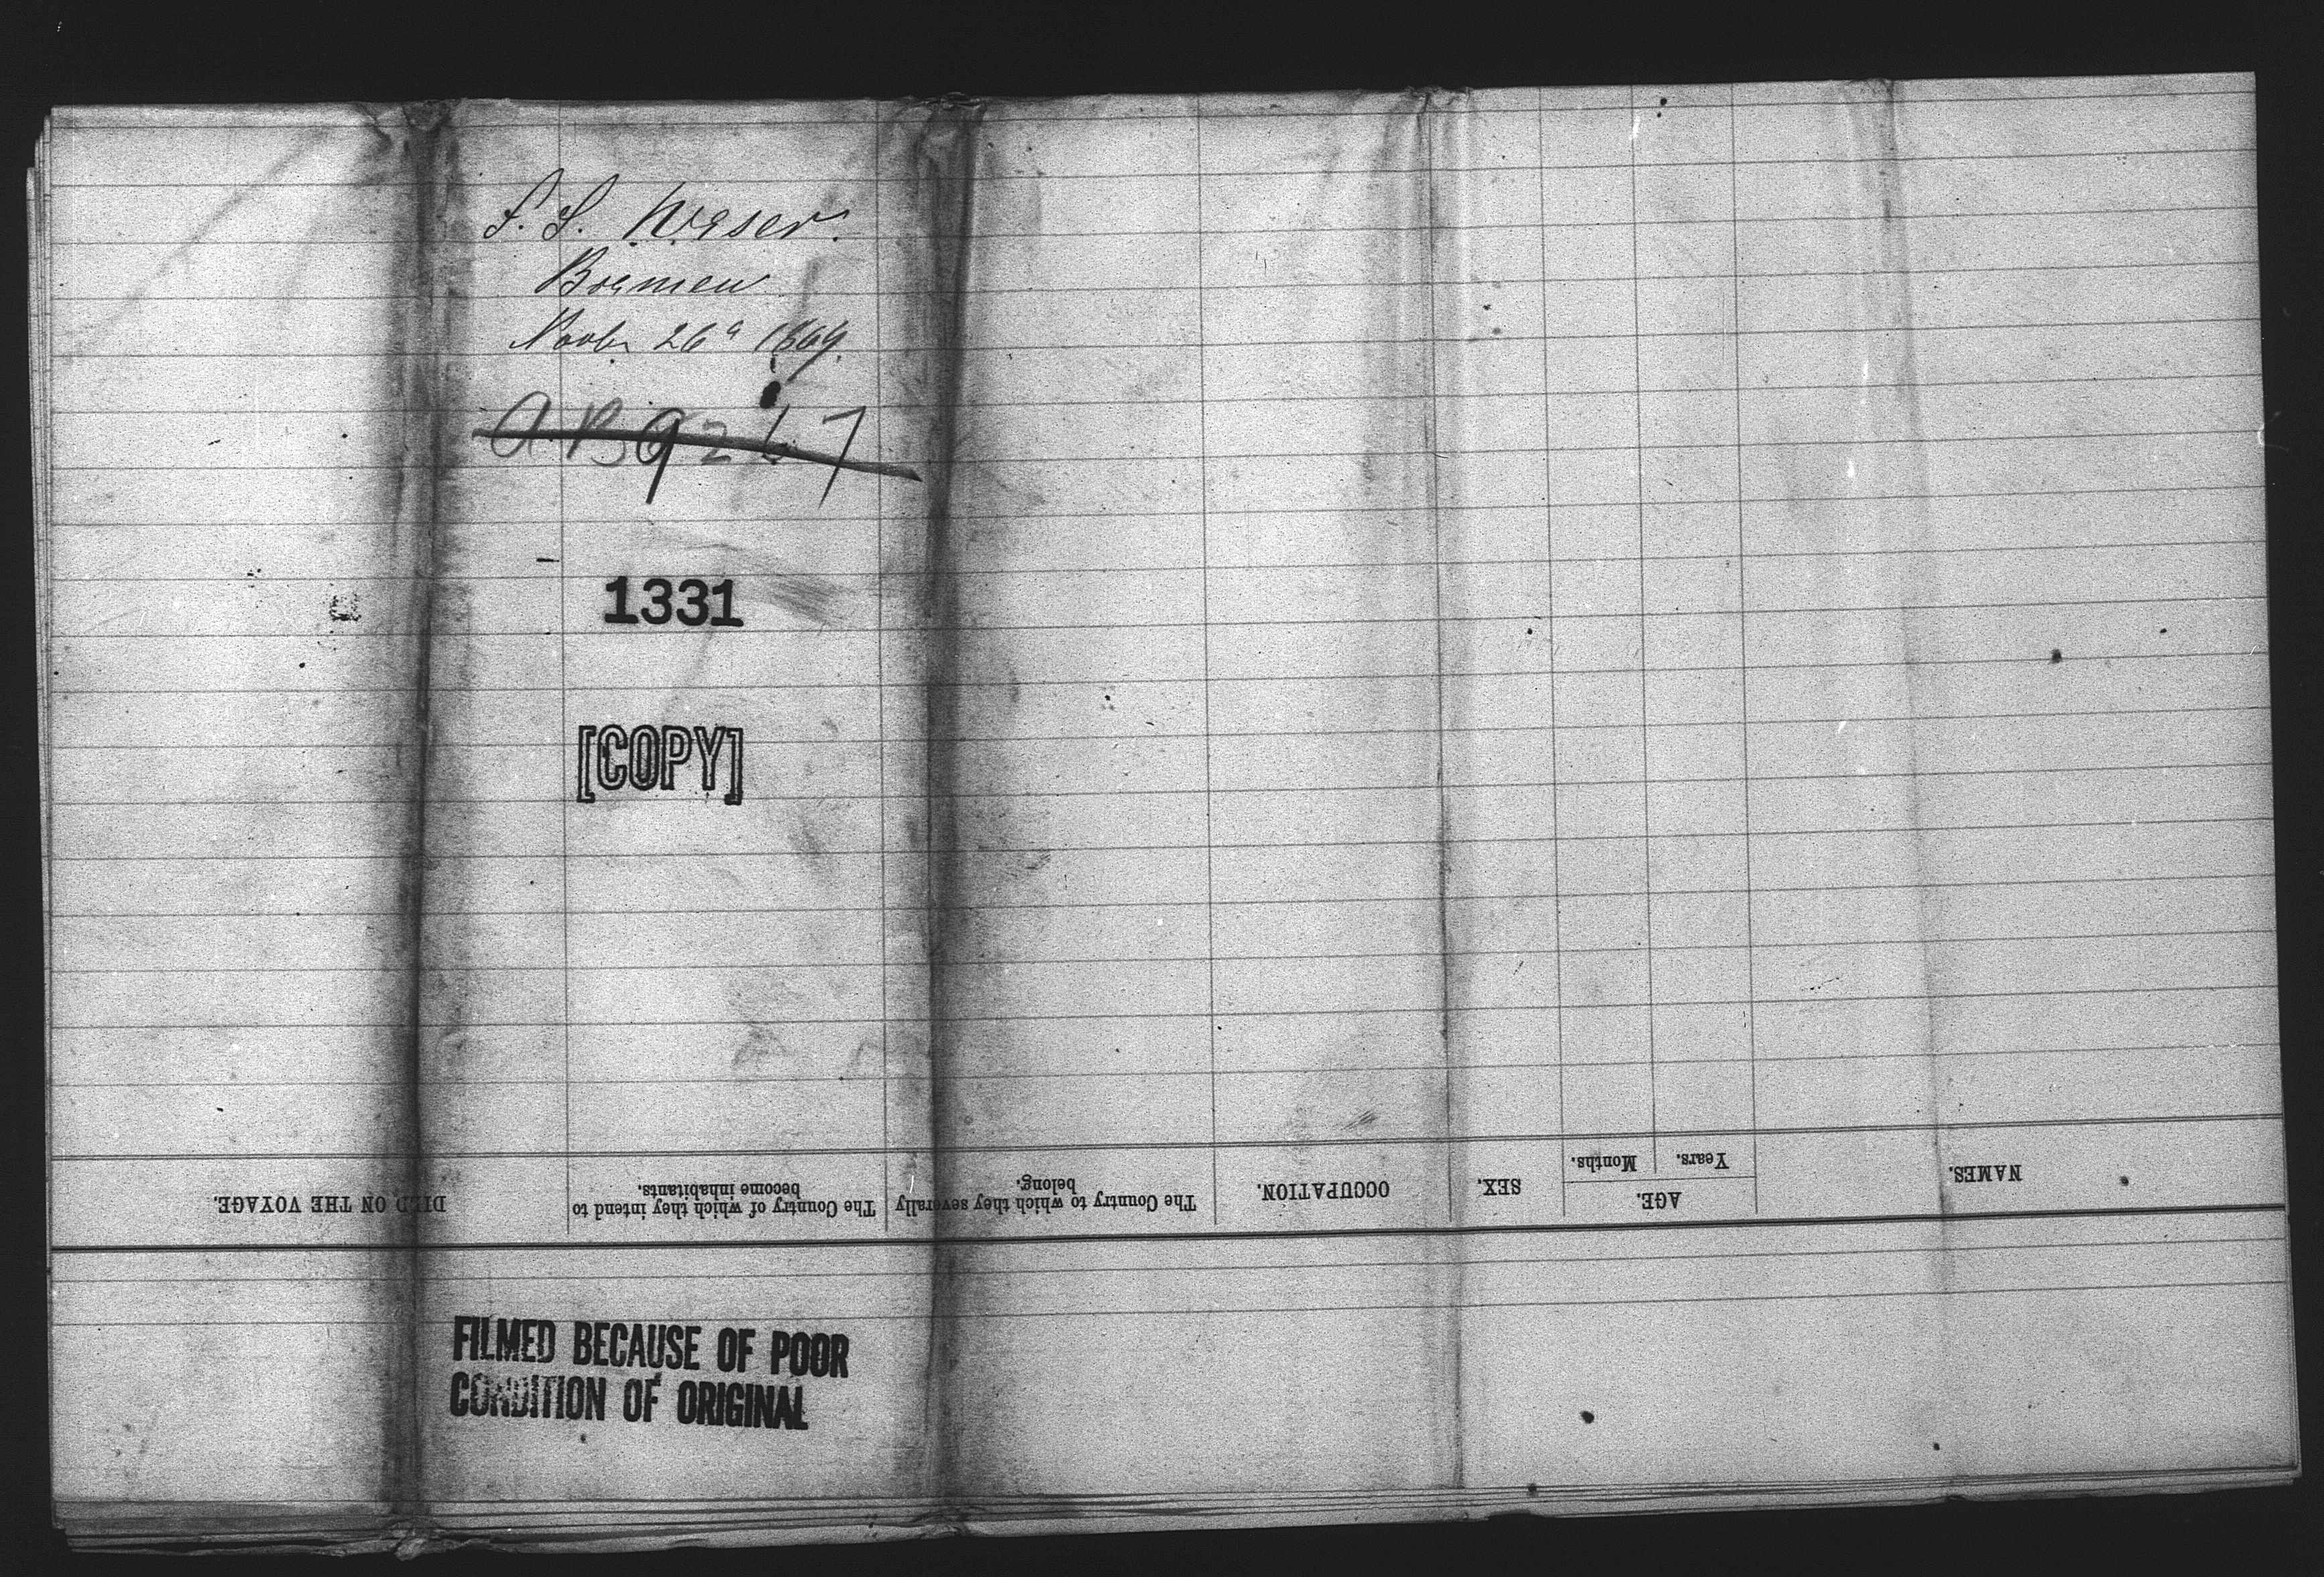 S. S. Weser.
Bremen
Novbr 26th 1869.
A.B. 9267
1331
[COPY]
NAMES.
AGE.
Years.
Months.
SEX.
OCCUPATION.
The Country to which they severally
belong.
The Country of which they intend to
become inhabitants.
DIED ON THE VOYAGE.
FILMED BECAUSE OF POOR
CONDITION OF ORIGINAL